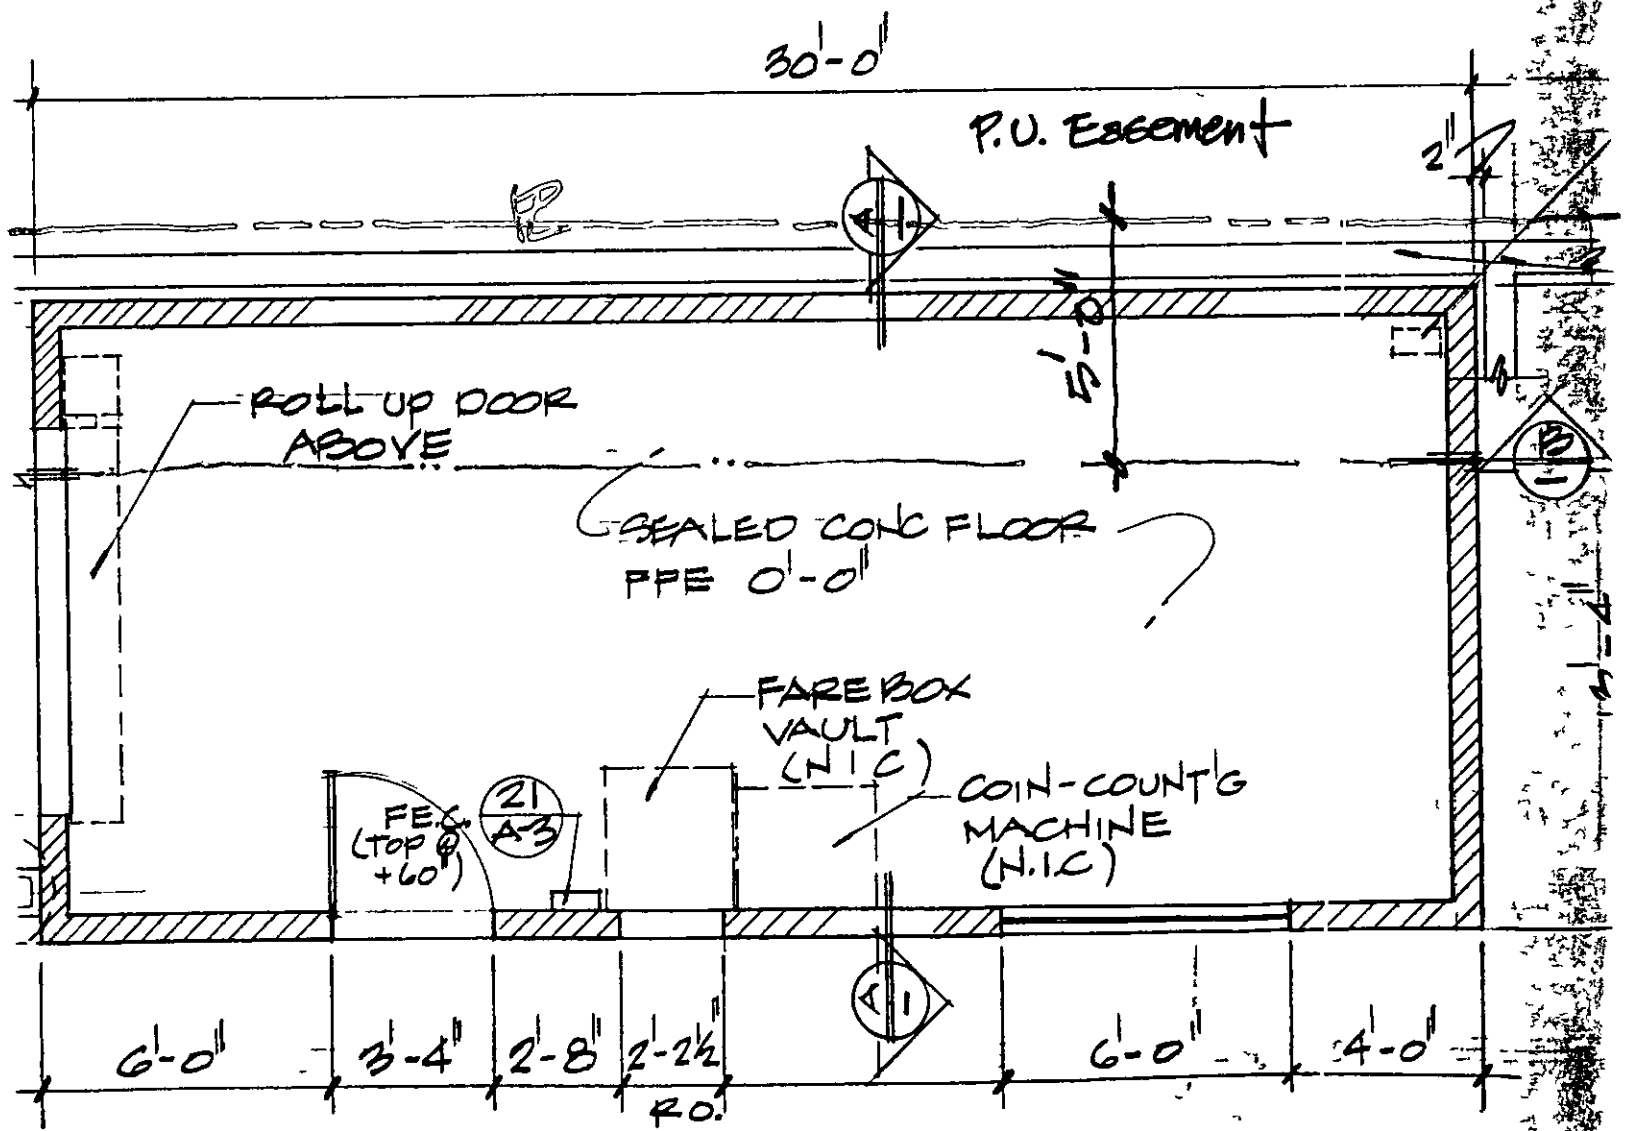 30'-0"
P.U. Easement
2"
A
1
5'-0"
ROLL UP DOOR
ABOVE
B
1
SEALED CONC FLOOR
FFE 0'-0"
FARE BOX
VAULT
(N I C)
COIN-COUNT'G
MACHINE
(N.I.C)
F.E.C.
(TOP @
+60")
21
A-3
A
1
6'-0"
3'-4"
2'-8"
2'-2½"
6'-0"
4'-0"
R.O.